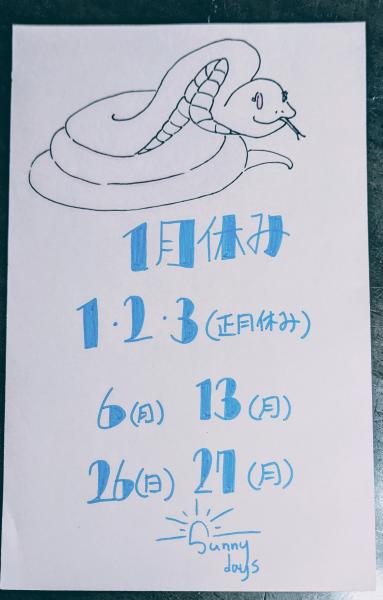 1月休み
1・2・3(正月休み)
6(月) 13(月)
26(日) 27(月)
Sunny
days